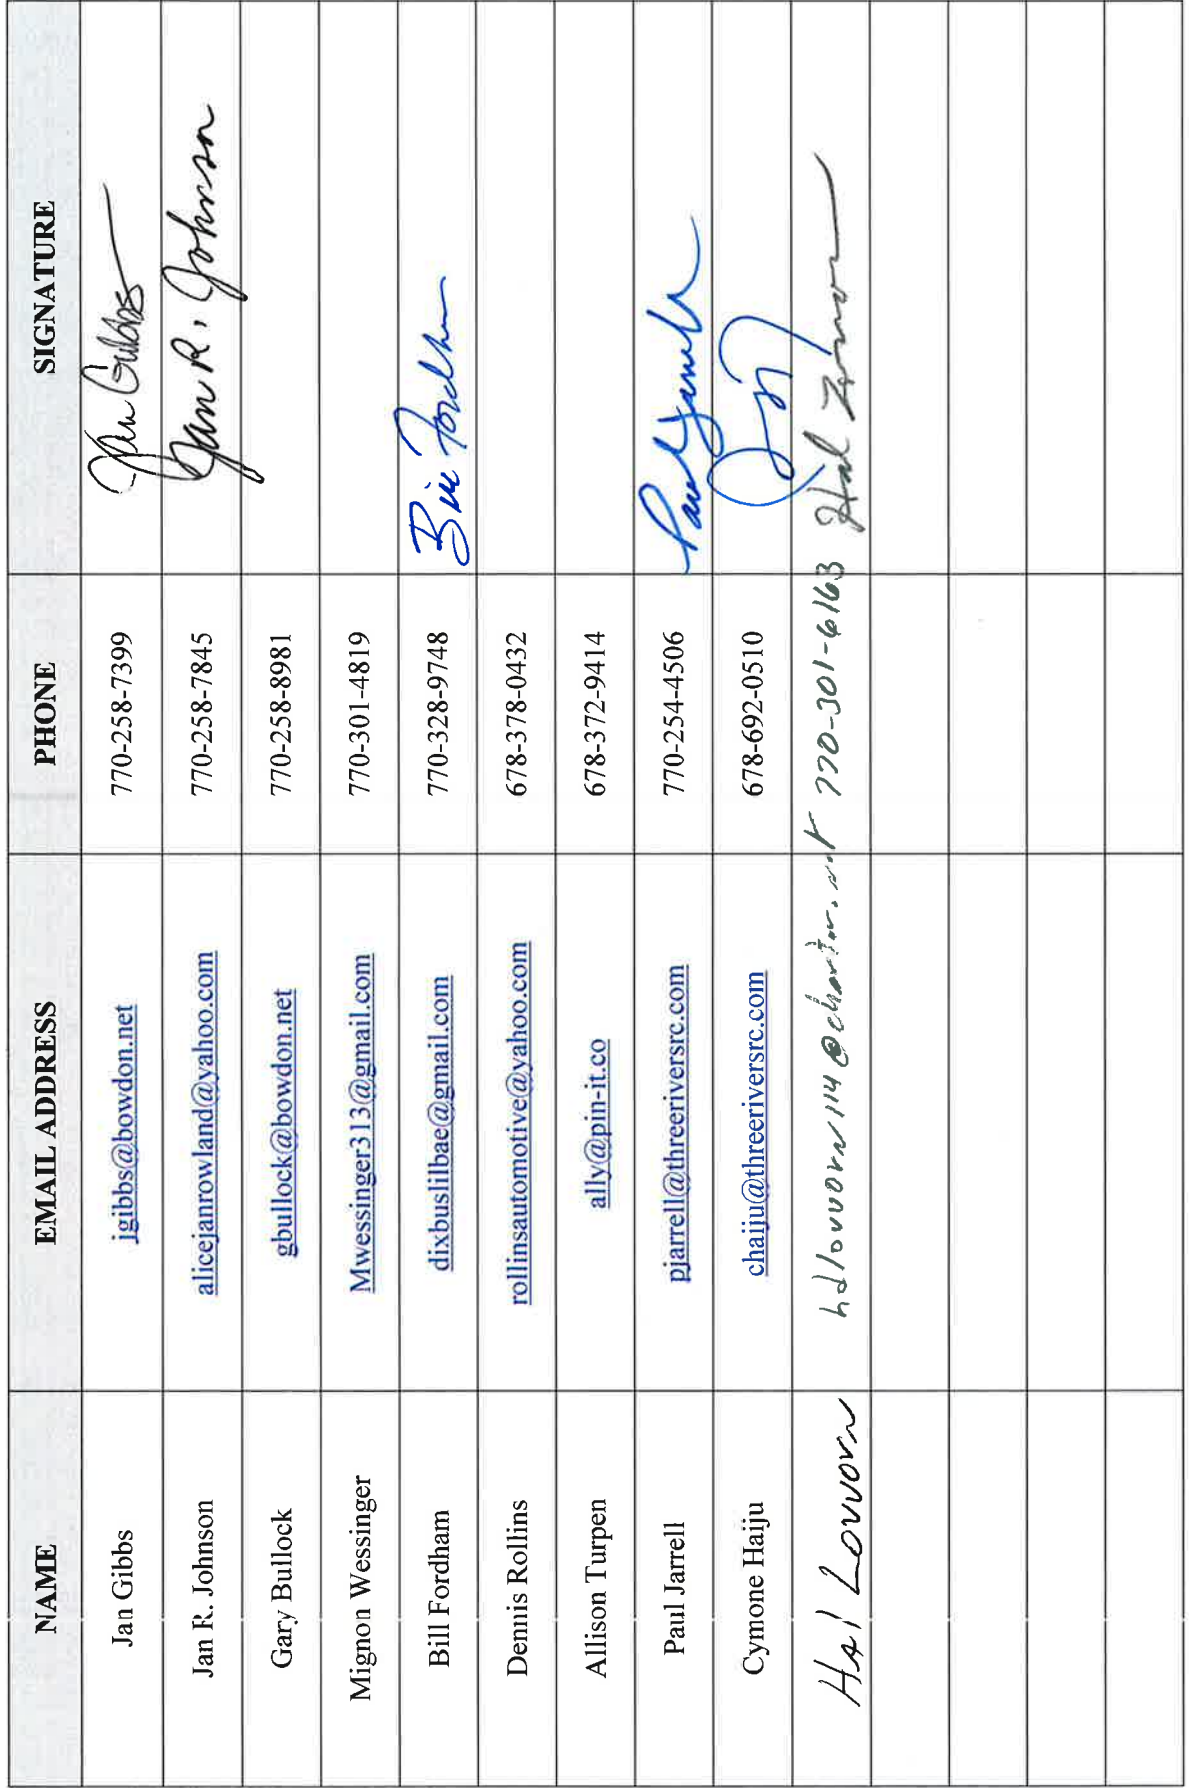 NAME EMAIL ADDRESS PHONE SIGNATURE
Jan Gibbs jgibbs@bowdon.net 770-258-7399 Jan Gibbs
Jan R. Johnson alicejanrowland@yahoo.com 770-258-7845 Jan R. Johnson
Gary Bullock gbullock@bowdon.net 770-258-8981
Mignon Wessinger Mwessinger313@gmail.com 770-301-4819
Bill Fordham dixbuslilbae@gmail.com 770-328-9748 Bill Fordham
Dennis Rollins rollinsautomotive@yahoo.com 678-378-0432
Allison Turpen ally@pin-it.co 678-372-9414
Paul Jarrell pjarrell@threeriversrc.com 770-254-4506 Paul Jarrell
Cymone Haiju chaiju@threeriversrc.com 678-692-0510
Hal Lovvorn hdlovvorn114@charter.net 770-301-6163 Hal Lovvorn